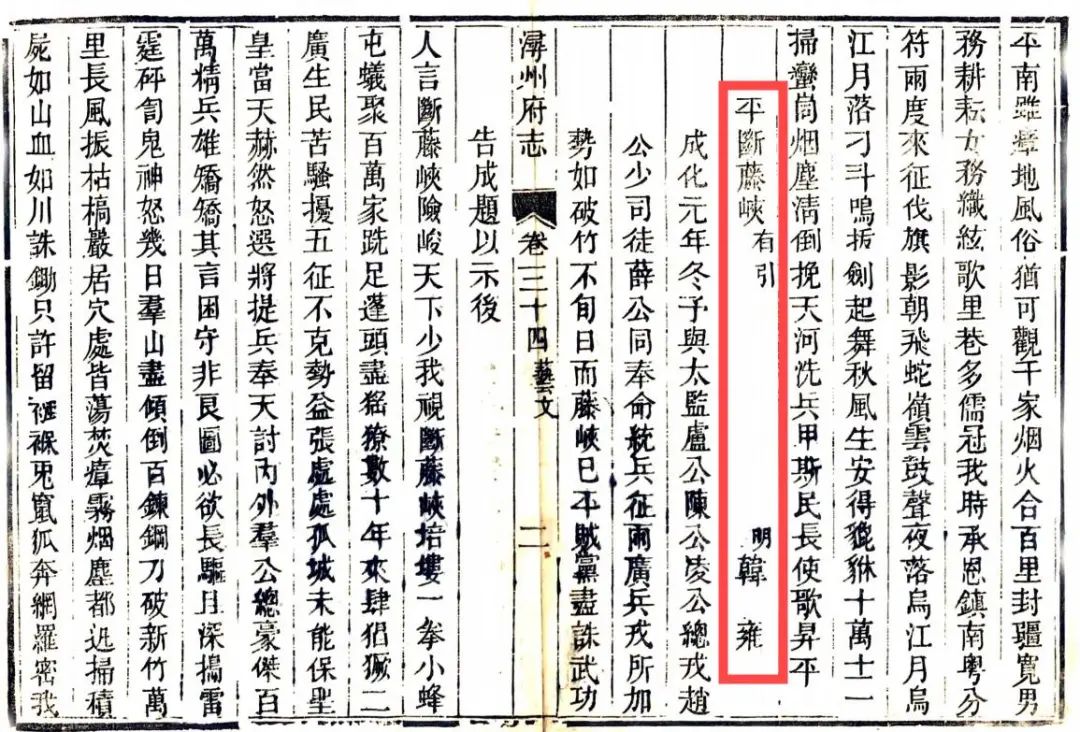 平南雖瘴地風俗猶可觀千家烟火合百里封疆寬男
務耕耘女務織絃歌里巷多儒冠我時承恩鎮南粵分
符兩度來征伐旗影朝飛蛇嶺雲鼓聲夜落烏江月烏
江月落刁斗鳴拔劍起舞秋風生安得貔貅十萬士一
掃蠻峝烟塵淸倒挽天河洗兵甲斯民長使歌昇平
平斷藤峽有引 明韓雍
成化元年冬予與太監盧公陳公凌公總戎趙
公少司徒薛公同奉命統兵征兩廣兵戎所加
勢如破竹不旬日而藤峽巳平賊黨盡誅武功
告成題以示後
潯州府志 卷三十四 藝文 二
人言斷藤峽險峻天下少我視斷藤峽培塿一拳小蜂
屯蟻聚百萬家跣足蓬頭盡猺獠數十年來肆猖獗二
廣生民苦騷擾五征不克勢益張處處孤城未能保聖
皇當天赫然怒選將提兵奉天討內外羣公總豪傑百
萬精兵雄矯矯其言困守非良圖必欲長驅且深搗雷
霆砰訇鬼神怒幾日羣山盡傾倒百鍊鋼刀破新竹萬
里長風振枯槁嚴居穴處皆蕩焚瘴霧烟塵都迅掃積
屍如山血如川誅鋤只許留襁褓兎竄狐奔網羅密我